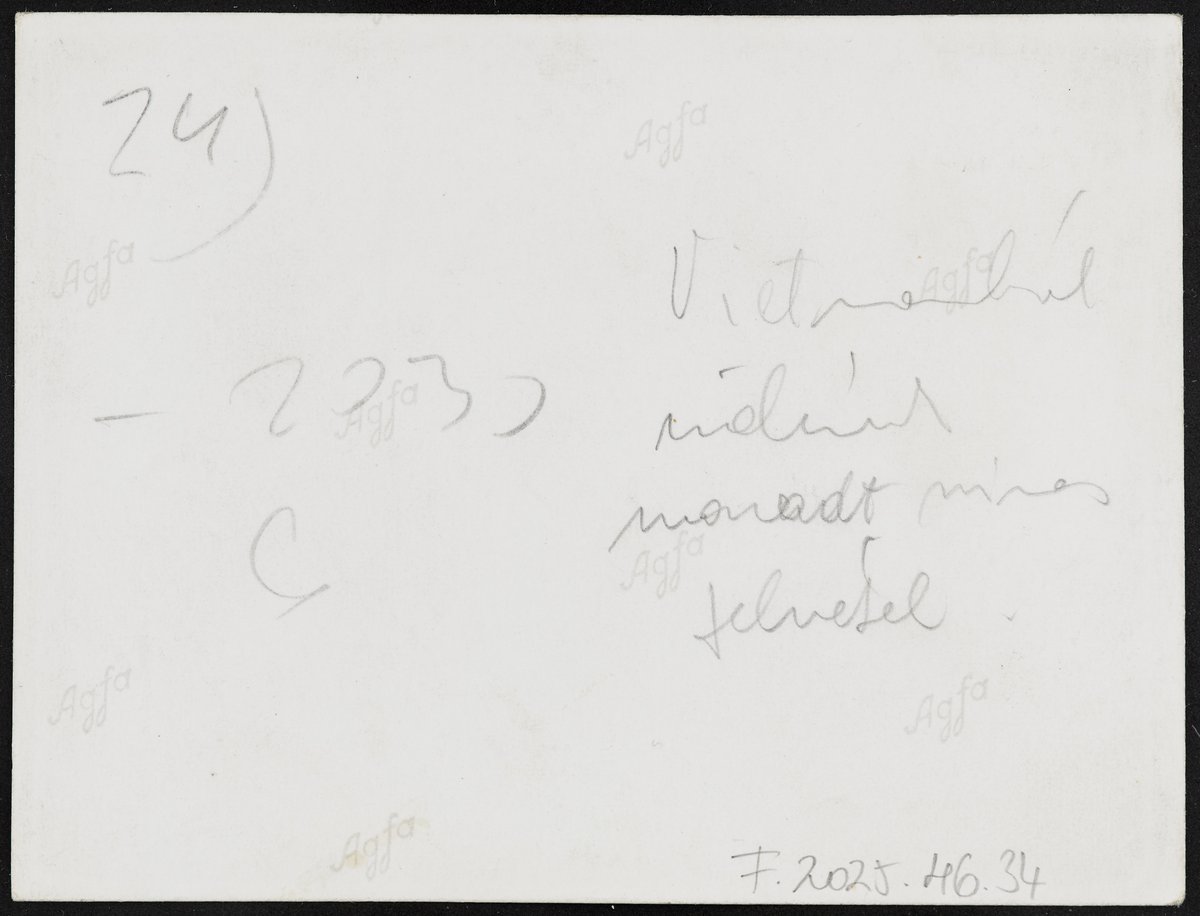 24)
Vietnamból
nálunk
– 2230
maradt nincs
felvétel.
F. 2025. 46. 34
Agfa
Agfa
Agfa
Agfa
Agfa
Agfa
Agfa
Agfa